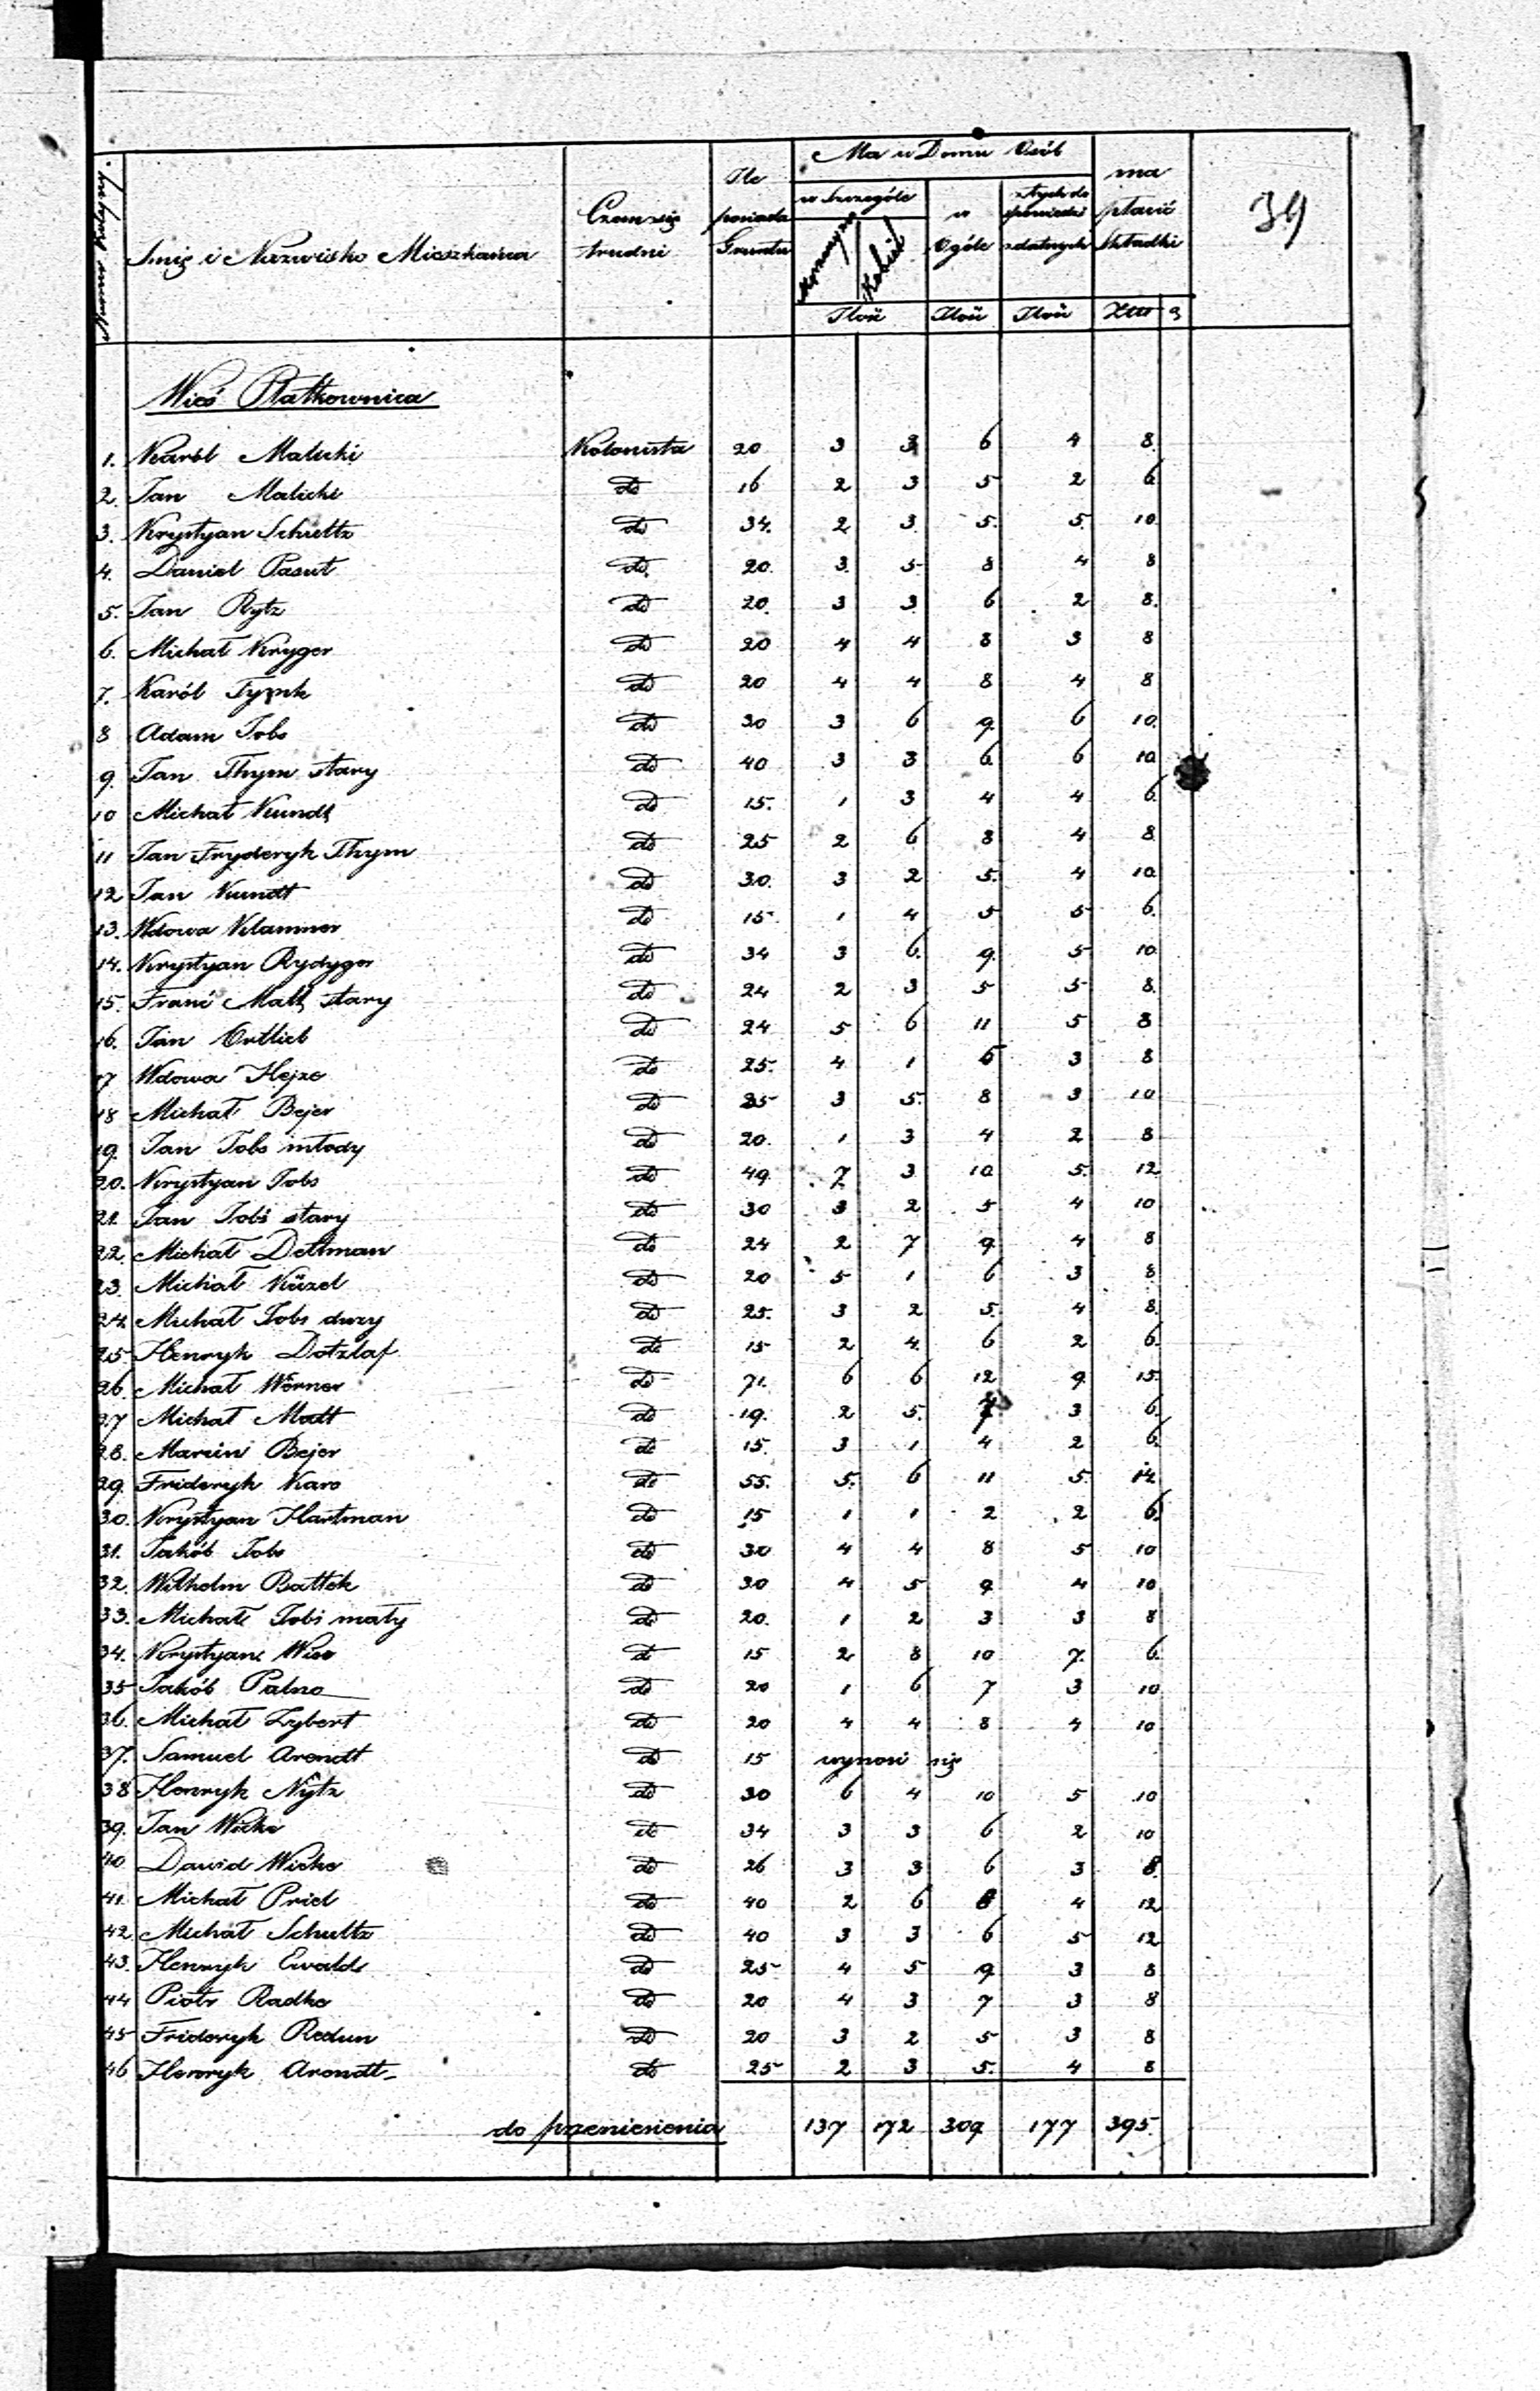 39
Imię i Nazwisko Mieszkańca
Czem się trudni
Ile posiada Gruntu
Ma w Domu Osób
w Szczególe
Mężczyzn
Kobiet
w Ogóle
z tych do spowiedzi zdatnych
ma płacić Składki
Ilość Ilość Ilość Złł g
Wieś Płatkownica
1. Karól Malicki Kolonista 20 3 3 6 4 8
2. Jan Malicki do 16 2 3 5 2 6
3. Krystyan Schultz do 34. 2 3 5. 5. 10
4. Daniel Pasut do 20. 3. 5. 8 4 8
5. Jan Rytz do 20. 3 3 6 2 8.
6. Michał Kryger do 20 4 4 8 3 8
7. Karól Tyzuk do 20 4 4 8 4 8
8 Adam Jobs do 30 3 6 9. 6 10.
9. Jan Thym stary do 40 3 3 6 6 10
10 Michał Kundt do 15. 1 3 4 4 6.
11 Jan Fryderyk Thym do 25 2 6 8 4 8.
12 Jan Kundt do 30. 3 2 5. 4 10
13. Wdowa Klammer do 15 1 4 5 5 6.
14. Krystyan Rydyger do 34 3 6. 9. 5 10
15. Franć Matt stary do 24 2 3 5 5 8.
16. Jan Ortlieb do 24 5 6 11 5 8
17 Wdowa Hejze do 25. 4 1 5 3 8
18 Michał Bejer do 35 3 5. 8 3 10
19. Jan Jobs młody do 20. 1 3 4 2 8
20. Krystyan Jobs do 49 7 3 10 5. 12
21. Jan Jobs stary do 30 3 2 5 4 10
22. Michał Dettman do 24 2 7 9 4 8
23. Michał Küzel do 20 5 1 6 3 8
24. Michał Jobs duży do 25. 3 2 5. 4 8.
25 Henryk Dotzlaf do 15 2 4. 6 2 6.
26. Michał Wörner do 71. 6 6 12 9 15.
27 Michał Matt do 19. 2 5. 7 3 6.
28. Marcin Bejer do 15. 3 1 4 2 6.
29. Frideryk Karo do 55. 5. 6 11 5. 14
30. Krystyan Hartman do 15 1 1 2 2 6.
31. Jakób Jobs do 30 4 4 8 5 10
32. Wilhelm Battek do 30 4 5 9 4 10
33. Michał Jobs mały do 20. 1 2 3 3 8
34. Krystyan Wise do 15 2 8 10 7. 6.
35 Jakób Palno do 20 1 6 7 3 10
36. Michał Zybert do 20 4 4 8 4 10
37. Samuel Arendt do 15 wynosi się
38 Henryk Nytz do 30 6 4 10 5 10
39. Jan Wicke do 34 3 3 6 2 10
40 Dawid Wicke do 26 3 3 6 3 8.
41. Michał Priel do 40 2 6 8 4 12
42 Michał Schultz do 40 3 3 6 5 12
43. Henryk Ewald do 25 4 5 9 3 8
44 Piotr Radke do 20 4 3 7 3 8
45 Frideryk Redun do 20 3 2 5 3 8
46 Henryk Arendt do 25 2 3 5. 4 8
do przeniesienia 137 172 309 177 395.